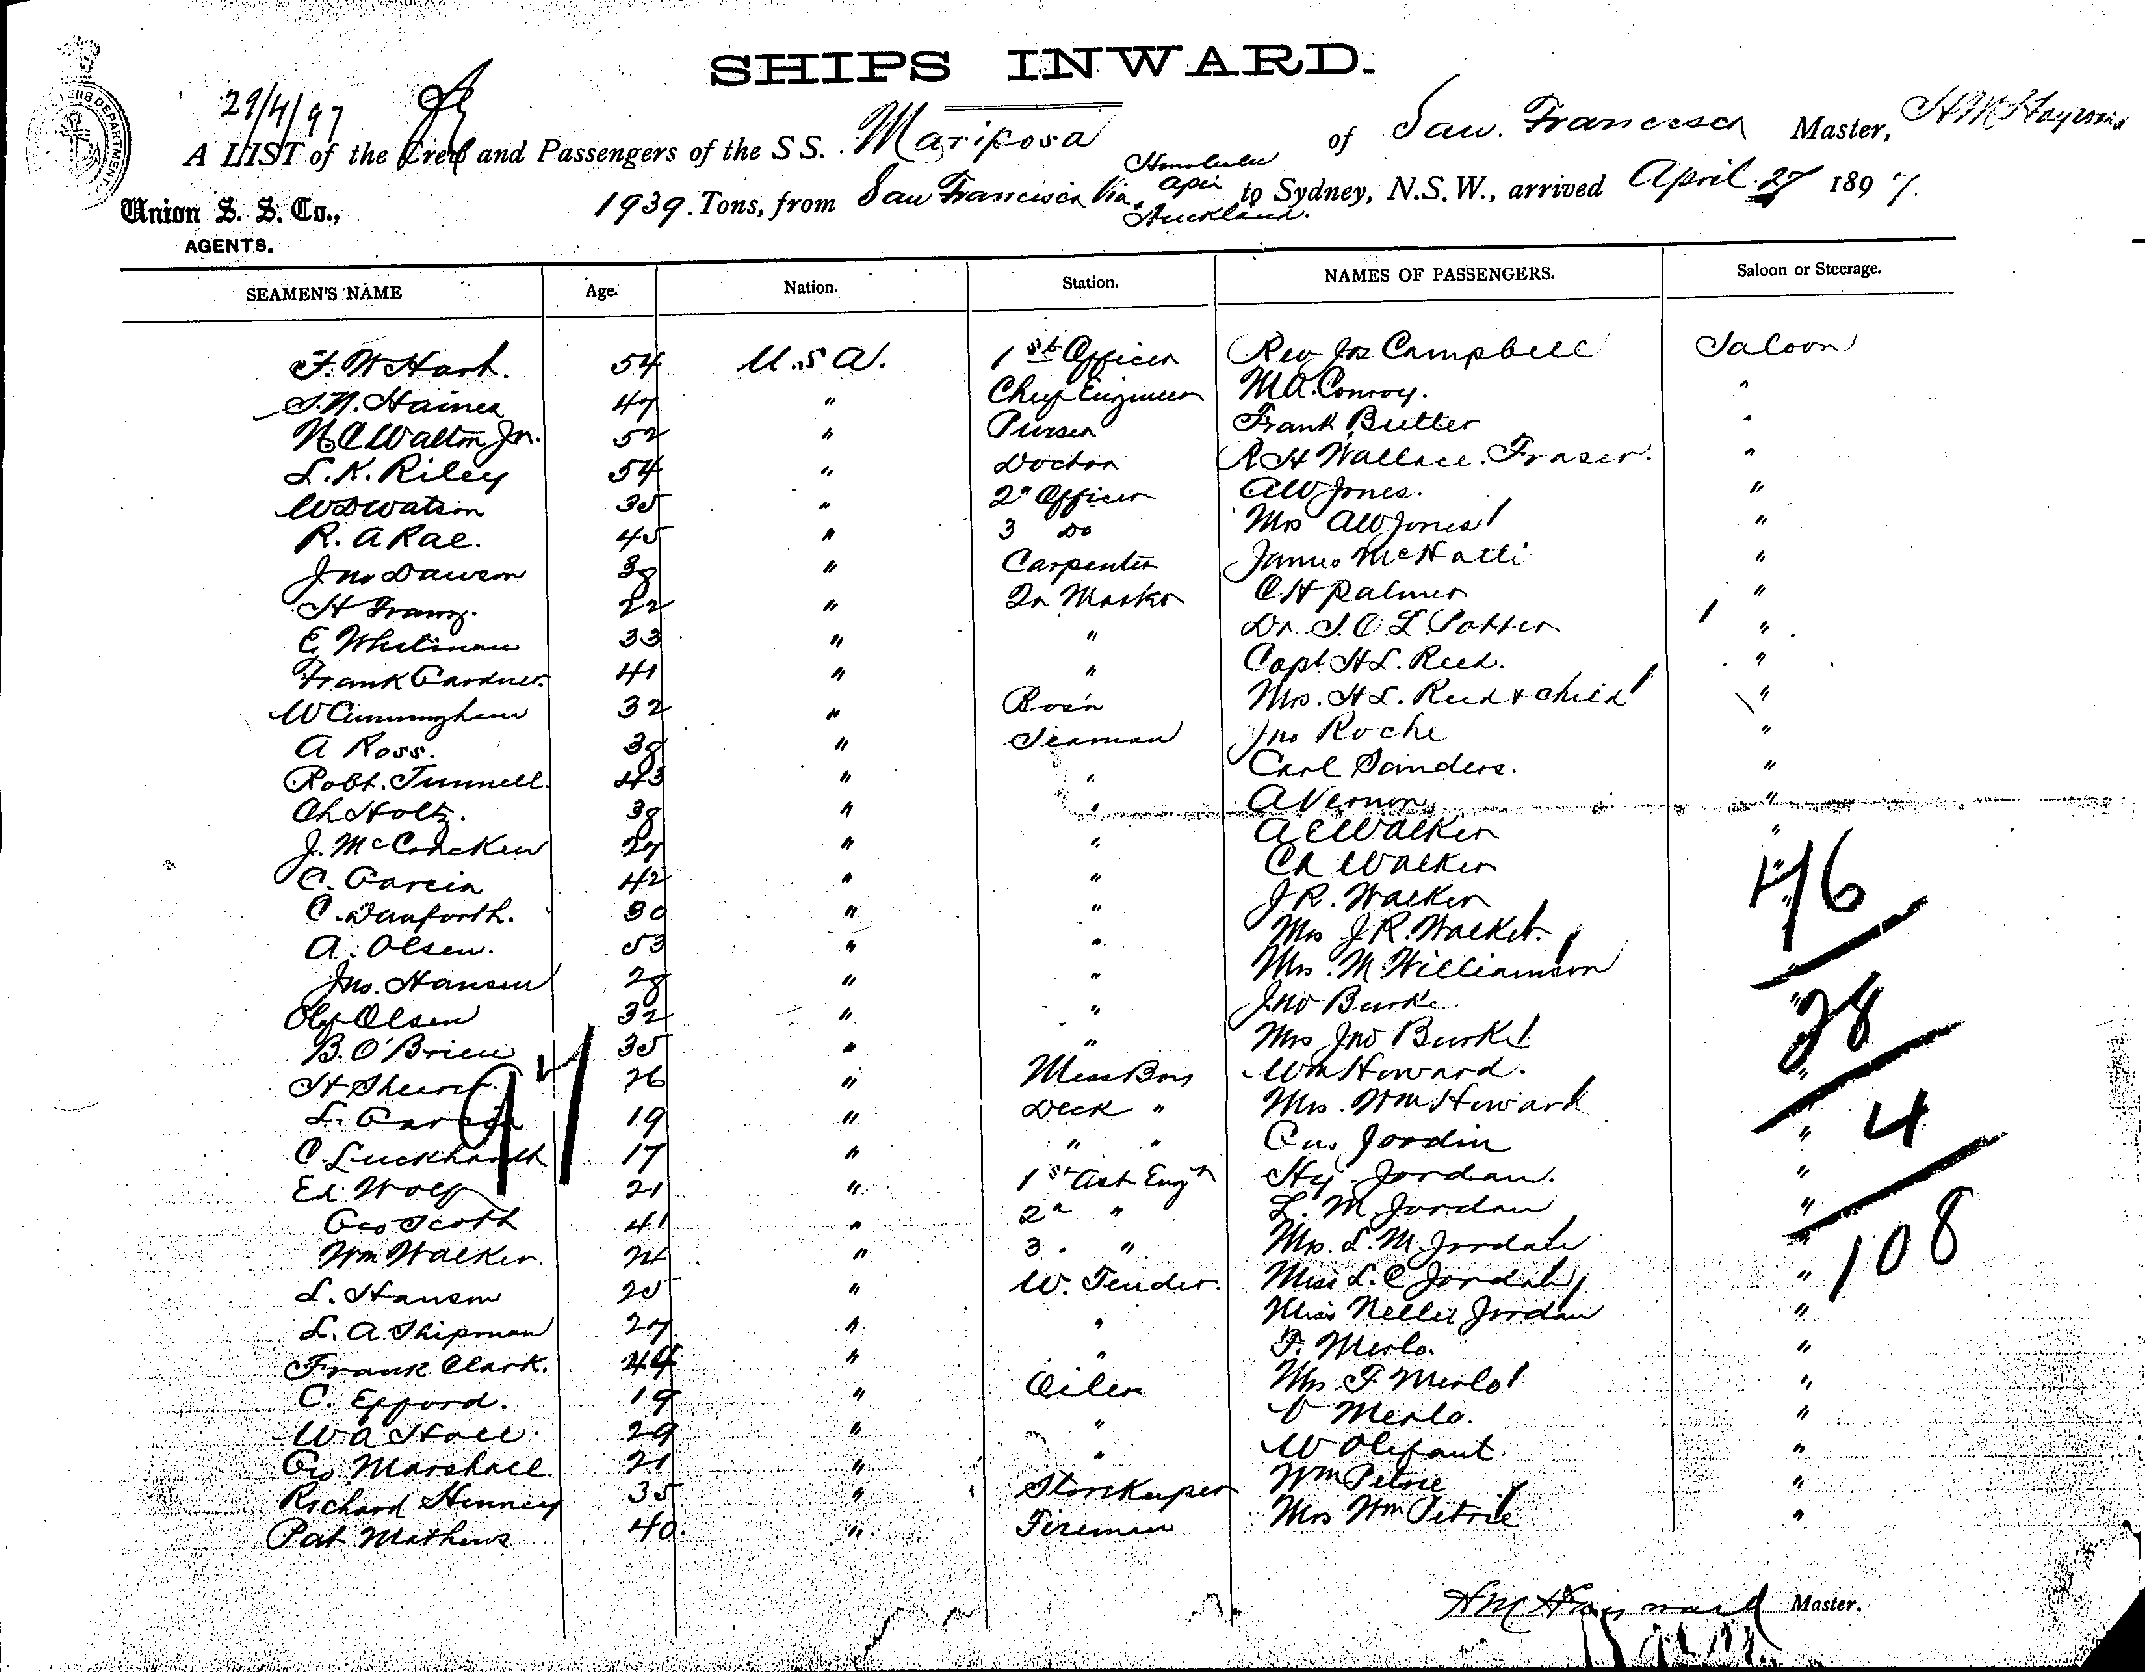 SHIPS INWARD.
29/4/97
A LIST of the Crew and Passengers of the SS. Mariposa of San Francisco Master, H M Hayward
Union S. S. Co., 1939 Tons, from San Francisco Via Honolulu Apia Auckland. to Sydney, N.S.W., arrived April 27 1897.
AGENTS.
SEAMEN'S NAME Age. Nation. Station. NAMES OF PASSENGERS. Saloon or Steerage.
F. W Hart. 54 U.S.A. 1st Officer Rev Jos Campbell Saloon
S.N. Haines 47 " Chief Engineer M A. Conroy. "
52 " Purser Frank Butler "
L.K. Riley 54 " Doctor R H Wallace Fraser. "
W D Watson 35 " 2d Officer A W Jones. "
R. A Rae. 45 " 3 Do Mrs A W Jones "
Jno Dawson 38 " Carpenter James "
H Franz. 22 " Qr Master C H Palmer "
E. 33 " " Dr. S. O L Potter "
Frank Gardner. 41 " " Capt H L. Reed. "
W Cunningham 32 " Bos'n Mrs. H L. Reed & child "
A Ross. 38 " Seaman Jno Roche "
Robt. Tunnell 43 " " Carl Sanders. "
Ch Holtz. 38 " " A Vernon "
J. McCracken 27 " " A C Walker "
C. Garcia 42 " " Ch Walker "
C. Danforth. 30 " " J R. Walker "
A. Olsen. 53 " " Mrs J R. Walker. "
Jno. Hansen 28 " " Mrs. M Williamson "
Olaf Olsen 32 " " Jno Burke. "
B. O'Brien 35 " " Mrs Jno Burke "
H 26 " Mess Boy Wm Howard. "
L. Garcia 19 " Deck " Mrs. Wm Howard "
C. Luckhardt 17 " " " Jordan "
Ed Wolf 21 " 1st Ast Engr Hy Jordan. "
Geo Scott 41 " 2d " L. M Jordan "
Wm Walker. 24 " 3. " Mrs. L. M. Jordan "
L. Hansen 25 " W. Tender. Miss L. C Jordan "
L. A. Shipman 27 " " Miss Nellie Jordan "
Frank Clark. 44 " " F. Merlo. "
C. Efford. 19 " Oiler Mrs. F Merlo "
W A Hall 29 " " V Merlo. "
Geo Marshall 21 " " W Olifant. "
Richard Henney 35 " Storekeeper Wm Petrie "
Pat Mathews 40. " Fireman Mrs Wm Petrie "
91
76
28
4
108
H M Hayward Master.